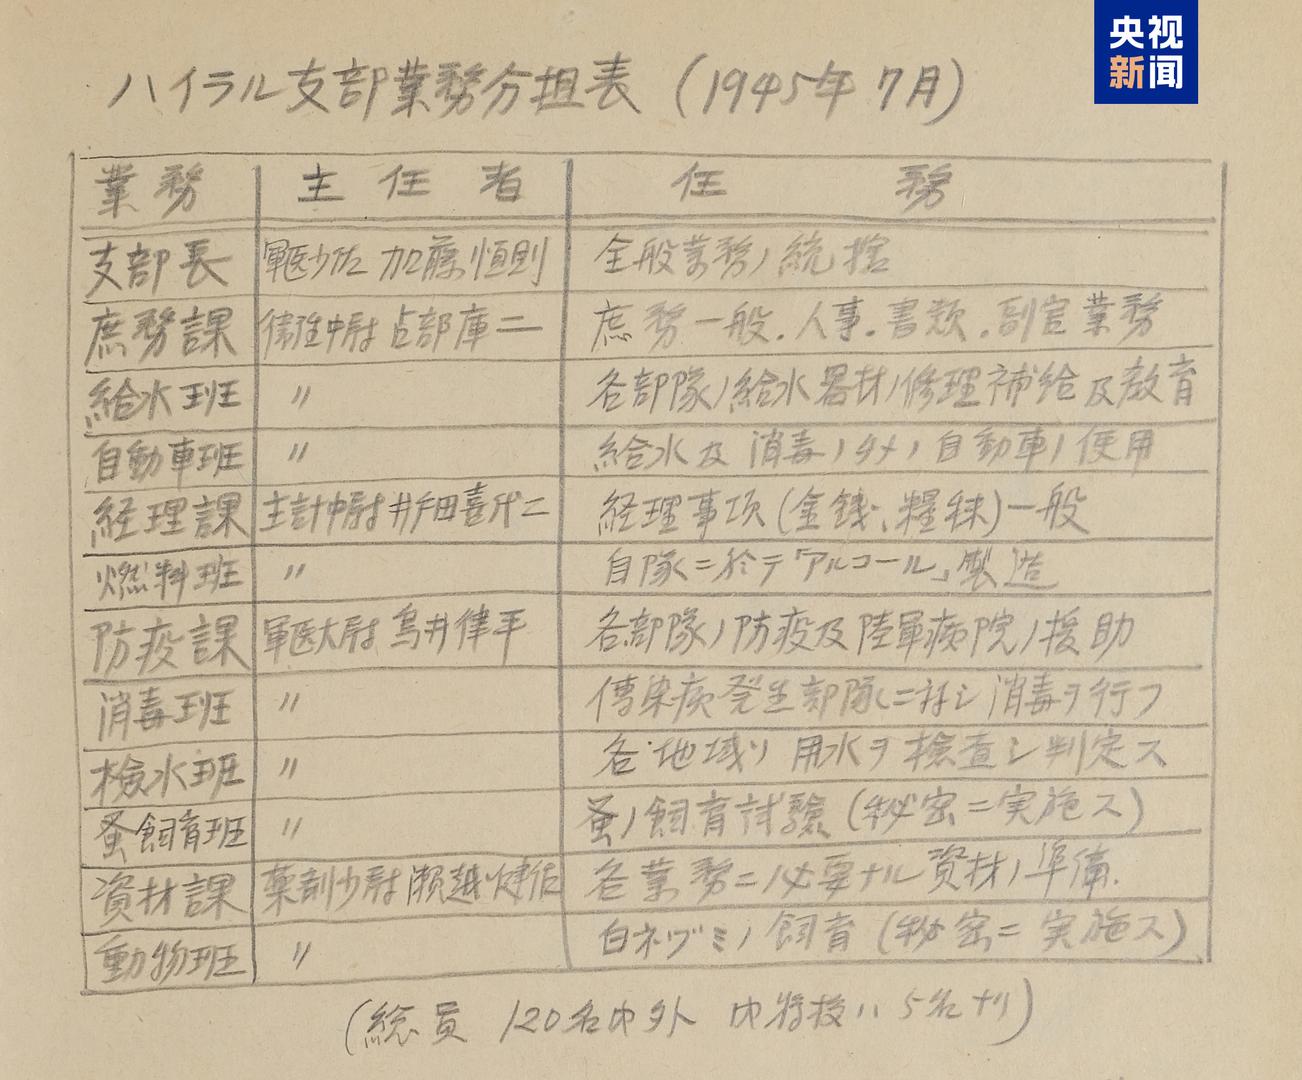 央视
新闻
ハイラル支部業務分担表（1945年7月）
業務 主任者 任務
支部長 軍医少佐 加藤恒則 全般業務ノ統括
庶務課 衛生中尉 占部庫二 庶務一般．人事．書類．副官業務
給水班 〃 各部隊ノ給水器材ノ修理補給及教育
自動車班 〃 給水及消毒ノタメノ自動車ノ使用
経理課 主計中尉 井戸田喜代二 経理事項（金銭、糧秣）一般
燃料班 〃 自隊ニ於テ「アルコール」製造
防疫課 軍医大尉 鳥井律平 各部隊ノ防疫及陸軍病院ノ援助
消毒班 〃 傳染病発生部隊ニ対シ消毒ヲ行フ
検水班 〃 各地域ノ用水ヲ検査シ判定ス
蚤飼育班 〃 蚤ノ飼育試験（秘密ニ実施ス）
資材課 薬剤少尉 瀬越健佐 各業務ニ必要ナル資材ノ準備．
動物班 〃 白ネヅミノ飼育（秘密ニ実施ス）
（総員 120名内外 内将校ハ5名ナリ）